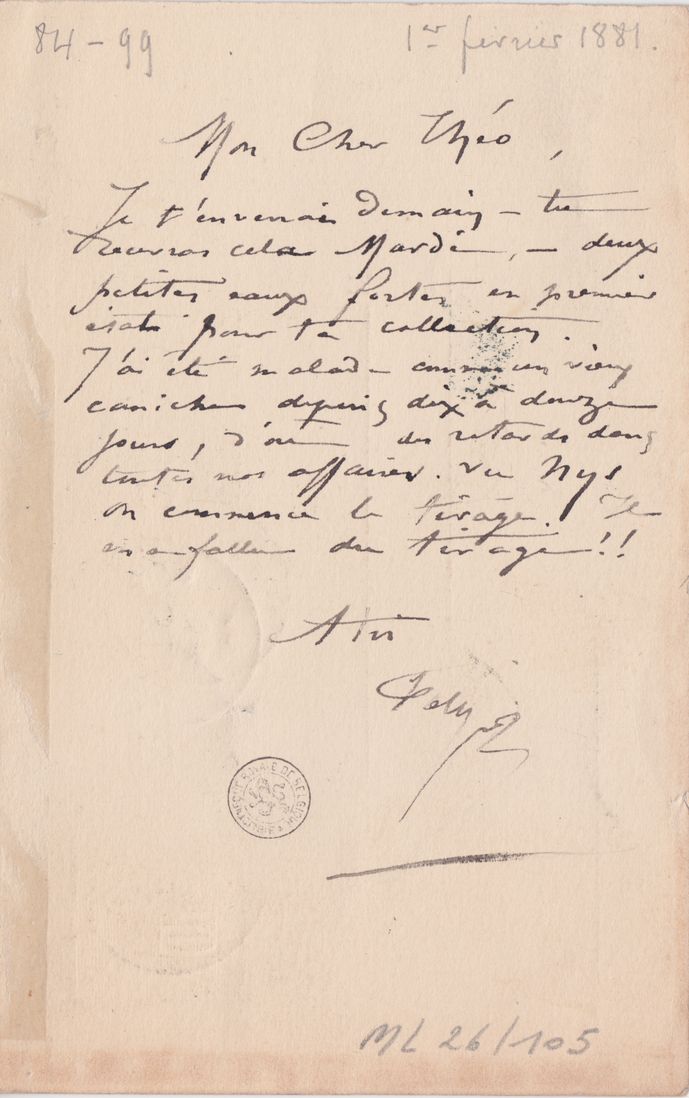 84 - 99
1er février 1881.
Mon Cher Théo,
Je t'enverrai Demain – tu
recevras cela Mardi, – deux
petites eaux fortes en premier
état pour ta collection.
J'ai été malade comme un vieux
caniche depuis dix à douze
jours, d'où des retards dans
toutes nos affaires. Vu Nys
on commence le tirage. Il
en a fallu du tirage!!
A toi
BIBLIOTHÈQUE ROYALE DE BELGIQUE
ML 26/105